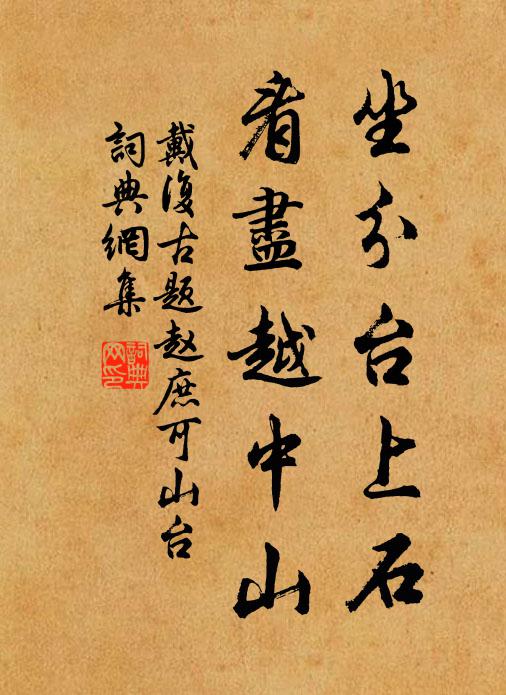 坐分台上石
看盡越中山
戴復古题赵庶可山台
詞典網集
詞典網印